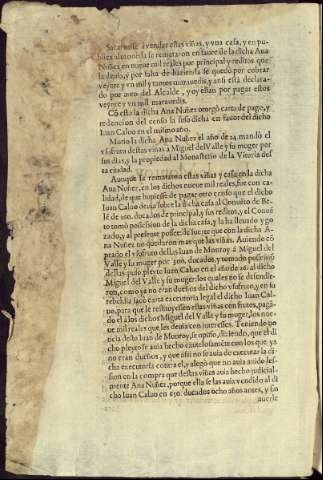 Sacaronse à vender estas viñas, y vna casa, y en pu-
blica almoneda se remataron en fauor de la dicha Ana
Nuñez en nueue mil reales por principal y reditos que
se deuio, y por falta de hazienda se quedò por cobrar
veynte y vn mil y tantos marauedis, y ansi està declara-
do por auto del Alcalde, y oy estan por pagar estos
veynte y vn mil marauedis.
Cō esta la dicha Ana Nuñez otorgò carta de pago, y
redencion del censo la susodicha en fauor del dicho
Iuan Caluo en el mismo año.
Murio la dicha Ana Nuñez el año de 24. mandò el
vsofruto destas viñas à Miguel del Valle y su muger por
sus dias, y la propiedad al Monasterio de la Vitoria des-
ta ciudad.
Aunque se remataron estas viñas y casa en la dicha
Ana Nuñez, en los dichos nueue mil reales, fue con ca-
lidad, de que huuiesse de pagar otro censo que el dicho
Iuan Caluo deuia sobre la dicha casa al Conuēto de Be-
lē de 160. ducados de principal, y sus reditos, y el Conuē-
to tomò possession de la dicha casa, y la ha lleuado y go
zado, y al presente possee: de suerte que con la dicha A-
na Nuñez no quedaron mas que las viñas. Auiendo cō-
prado el vsofruto destas Iuan de Monroy à Miguel del
Valle y su muger por 306. ducados, y tomado possessiō
dellas puso pleyto Iuan Caluo en el año de 26. al dicho
Miguel del Valle y su muger, los quales no se defendie-
ron, como ya no eran dueños del dicho vsofruto, y en su
rebeldia sacò carta executoria legal el dicho Iuan Cal-
uo, para que le restituyessen estas viñas con frutos, pagā-
do el à los dichos Miguel del Valle y su muger, los nue-
ue mil reales que les deuia con interesses. Teniendo no
ticia desto Iuan de Monroy se opuso, diziendo, que el di
cho pleyto se auia hecho cautelosamēte con los que ya
no eran dueños, y que assi no se auia de executar la di-
cha executoria contra el, y alegò que no auia auido les-
sion en la compra que destas viñas auia hecho judicial-
mente Ana Nuñez, porque ella se las auia vendido al di
cho Iuan Caluo en 650. ducados ocho años antes, y sin
auerle